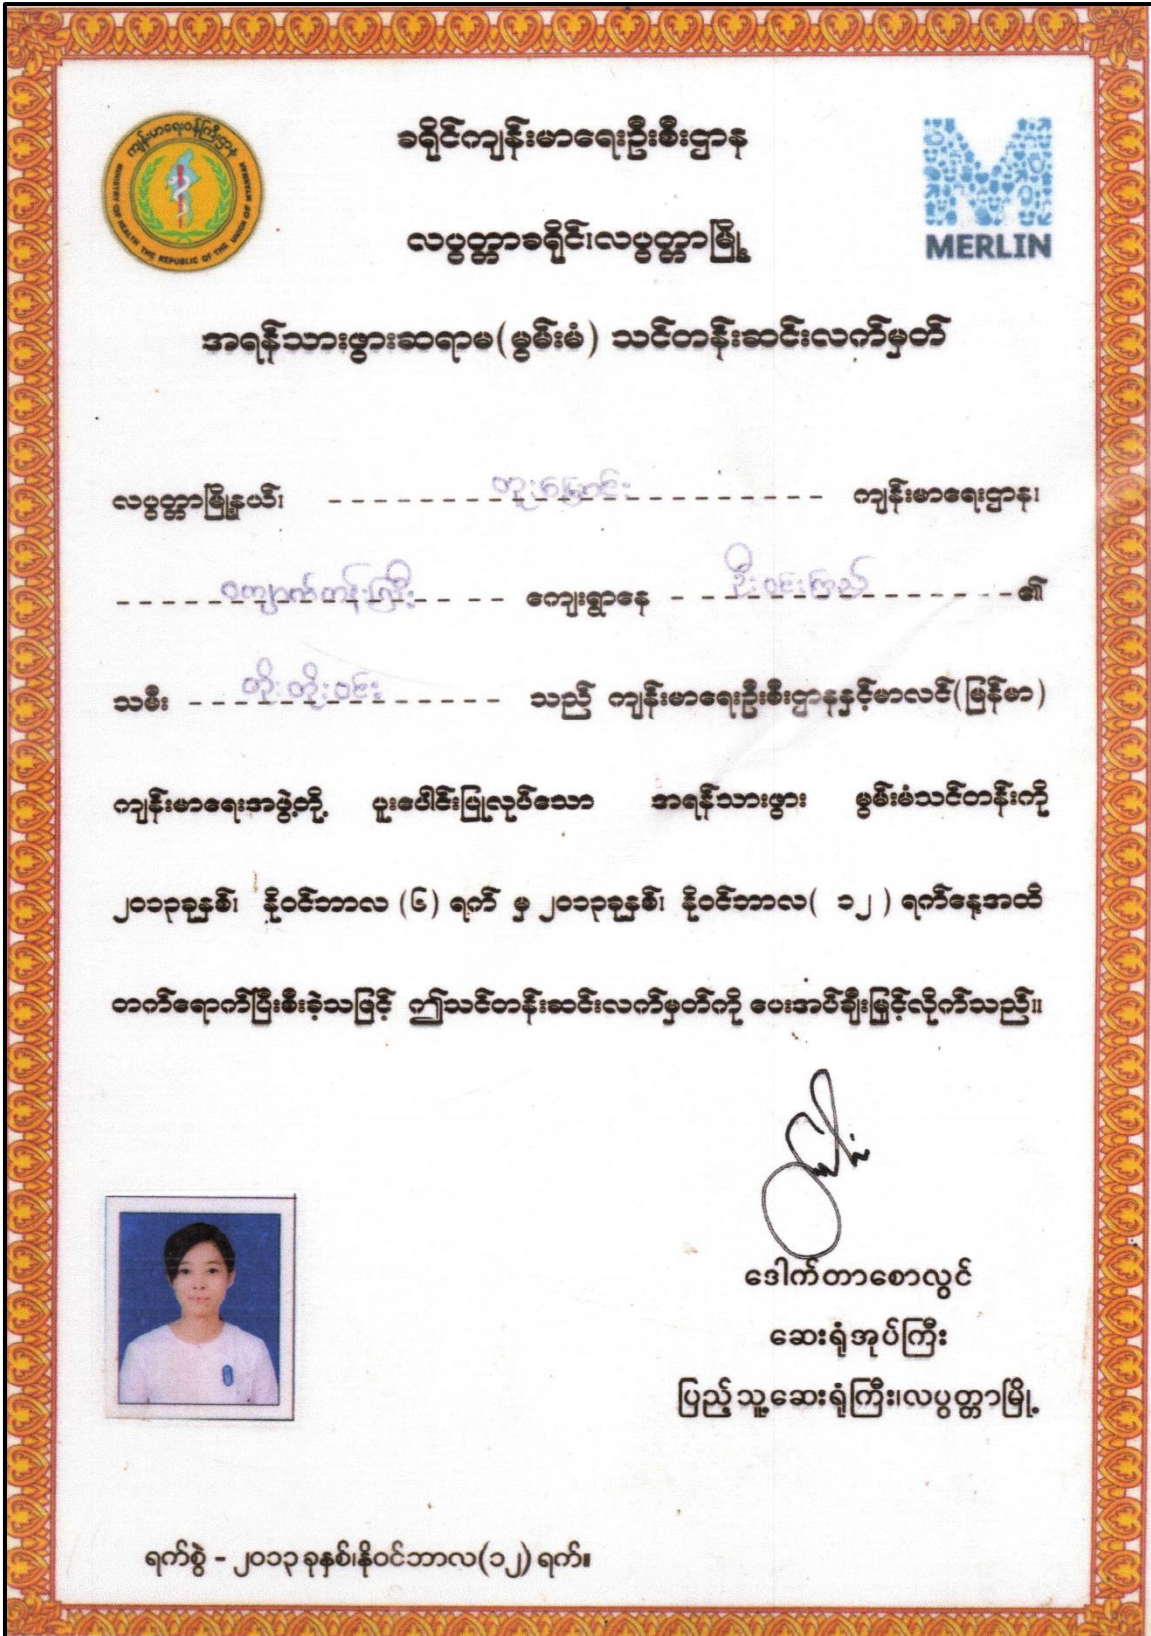 ကျန်းမာရေးဝန်ကြီးဌာန
MINISTRY OF HEALTH THE REPUBLIC OF THE UNION OF MYANMAR
MERLIN
ခရိုင်ကျန်းမာရေးဦးစီးဌာန
လပွတ္တာခရိုင်၊လပွတ္တာမြို့
အရန်သားဖွားဆရာမ(မွမ်းမံ) သင်တန်းဆင်းလက်မှတ်
လပွတ္တာမြို့နယ်၊ ကျန်းမာရေးဌာန၊
ကျောက်တန်းကြီး ကျေးရွာနေ ဦးဝင်းကြည် ၏
သမီး တိုးတိုးဝင်း သည် ကျန်းမာရေးဦးစီးဌာနနှင့်မာလင်(မြန်မာ)
ကျန်းမာရေးအဖွဲ့တို့ ပူးပေါင်းပြုလုပ်သော အရန်သားဖွား မွမ်းမံသင်တန်းကို
၂၀၁၃ခုနှစ်၊ နိုဝင်ဘာလ (၆) ရက် မှ ၂၀၁၃ခုနှစ်၊ နိုဝင်ဘာလ( ၁၂ ) ရက်နေ့အထိ
တက်ရောက်ပြီးစီးခဲ့သဖြင့် ဤသင်တန်းဆင်းလက်မှတ်ကို ပေးအပ်ချီးမြှင့်လိုက်သည်။
ဒေါက်တာစောလွင်
ဆေးရုံအုပ်ကြီး
ပြည်သူ့ဆေးရုံကြီး၊လပွတ္တာမြို့
ရက်စွဲ - ၂၀၁၃ ခုနှစ်၊နိုဝင်ဘာလ(၁၂) ရက်။